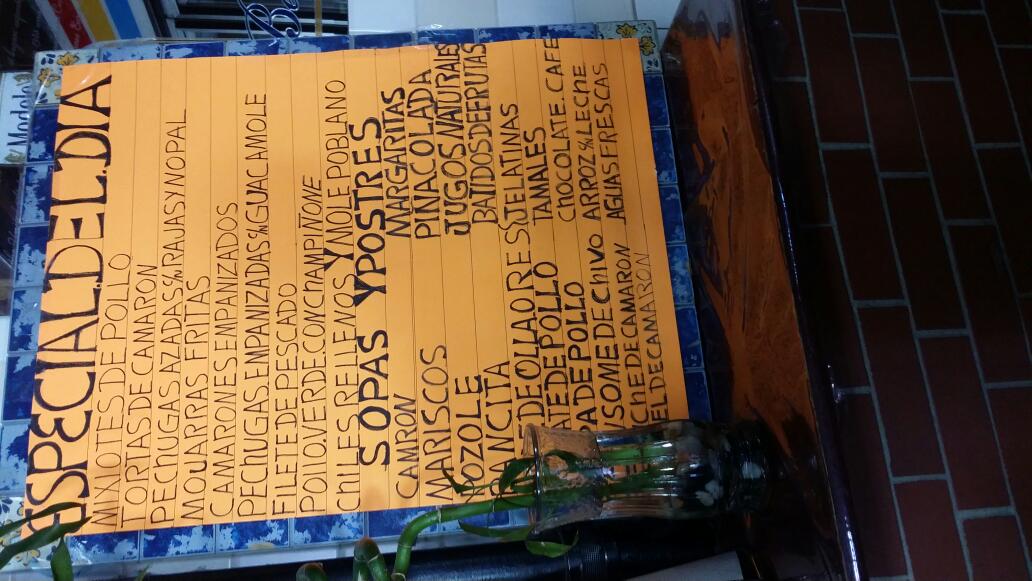 ESPECIAL DEL DIA
MIXIOTES DE POLLO
TORTAS DE CAMARON
PECHUGAS AZADAS S%N RAJAS Y NOPAL
MOUARRAS FRITAS
CAMARONES EMPANIZADOS
PECHUGAS, EMPANIZADAS %N GUACAMOLE
FILETE DE PESCADO
POLLO VERDE. CON CHAMPIÑONE
CHILES RELLENOS Y MOLE POBLANO
SOPAS Y POSTRES
CAMARON
MARISCOS
POZOLE
PANCITA
DE OLLA O RES
DE POLLO
PA DE POLLO
DE CHIVO
CHE DE CAMARON
EL DE CAMARON
MARGARITAS
PIÑA COLADA
JUGOS NATURALES
BATIDOS DE FRUTAS
TAMALES
CHOCOLATE. CAFE
ARROZ %N LECHE
AGUAS FRESCAS
Modelo